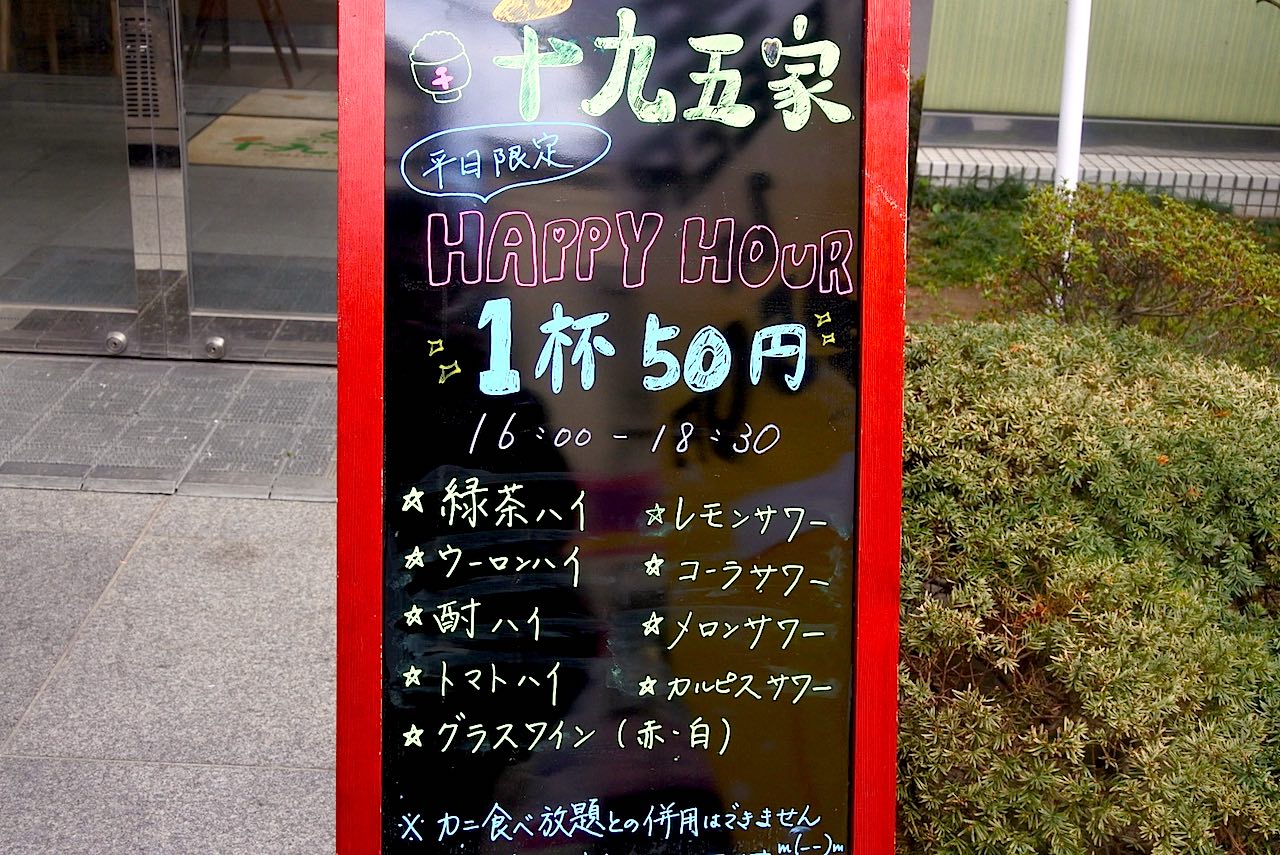 十九五家
平日限定
HAPPY HOUR
1杯 50円
16:00 - 18:30
☆緑茶ハイ ☆レモンサワー
☆ウーロンハイ ☆コーラサワー
☆酎ハイ ☆メロンサワー
☆トマトハイ ☆カルピスサワー
☆グラスワイン (赤・白)
※カニ食べ放題との併用はできません
m(--)m